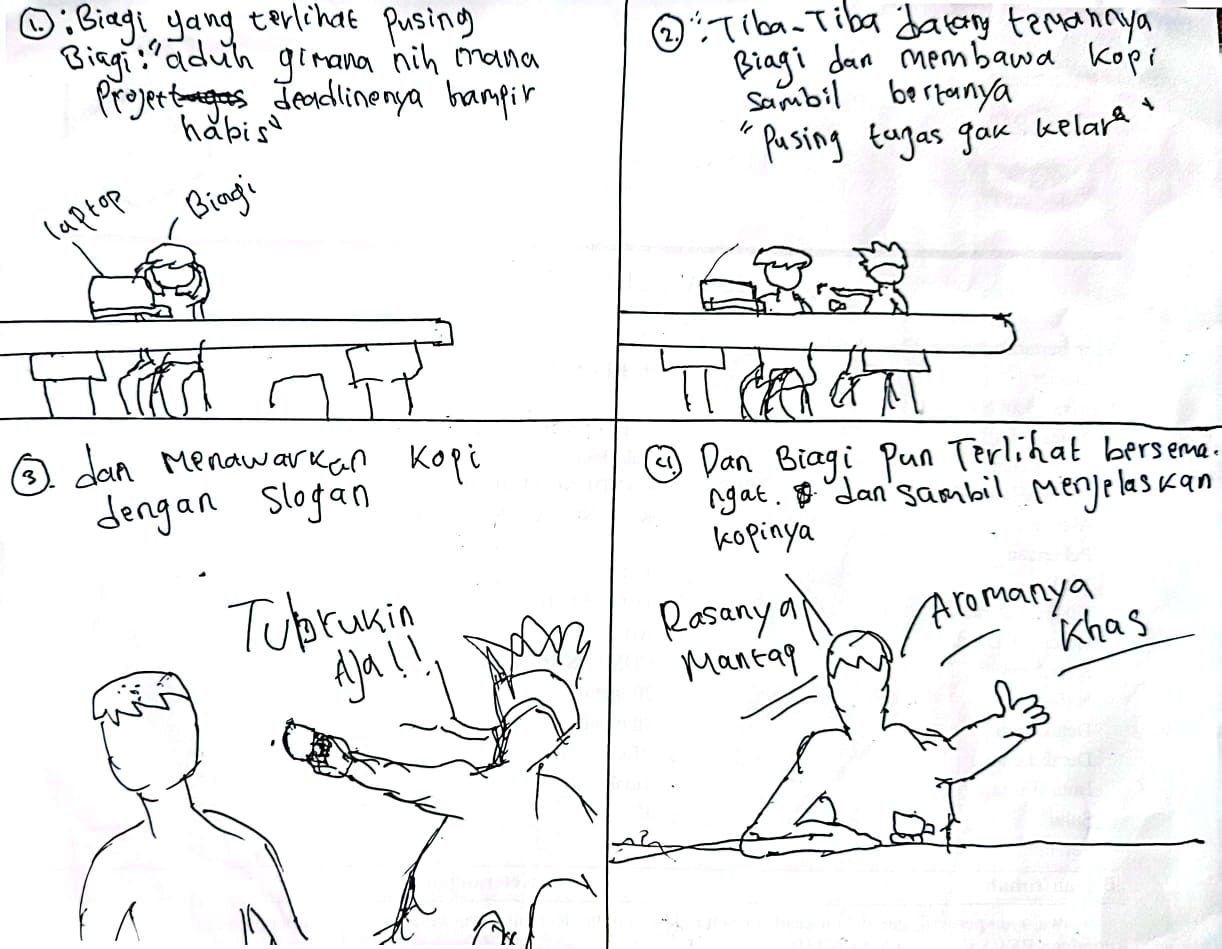 1. : Biagi yang terlihat Pusing
Biagi : "aduh gimana nih mana
Projert deadlinenya hampir
habis"
laptop
Biagi
2. : Tiba-Tiba datang temannya
Biagi dan membawa kopi
sambil bertanya
"Pusing tugas gak kelar"
3. dan Menawarkan kopi
dengan slogan
Tubrukin
Aja!!
4. Dan Biagi Pun Terlihat bersema-
ngat. dan sambil Menjelaskan
kopinya
Rasanya
Mantap
Aromanya
Khas